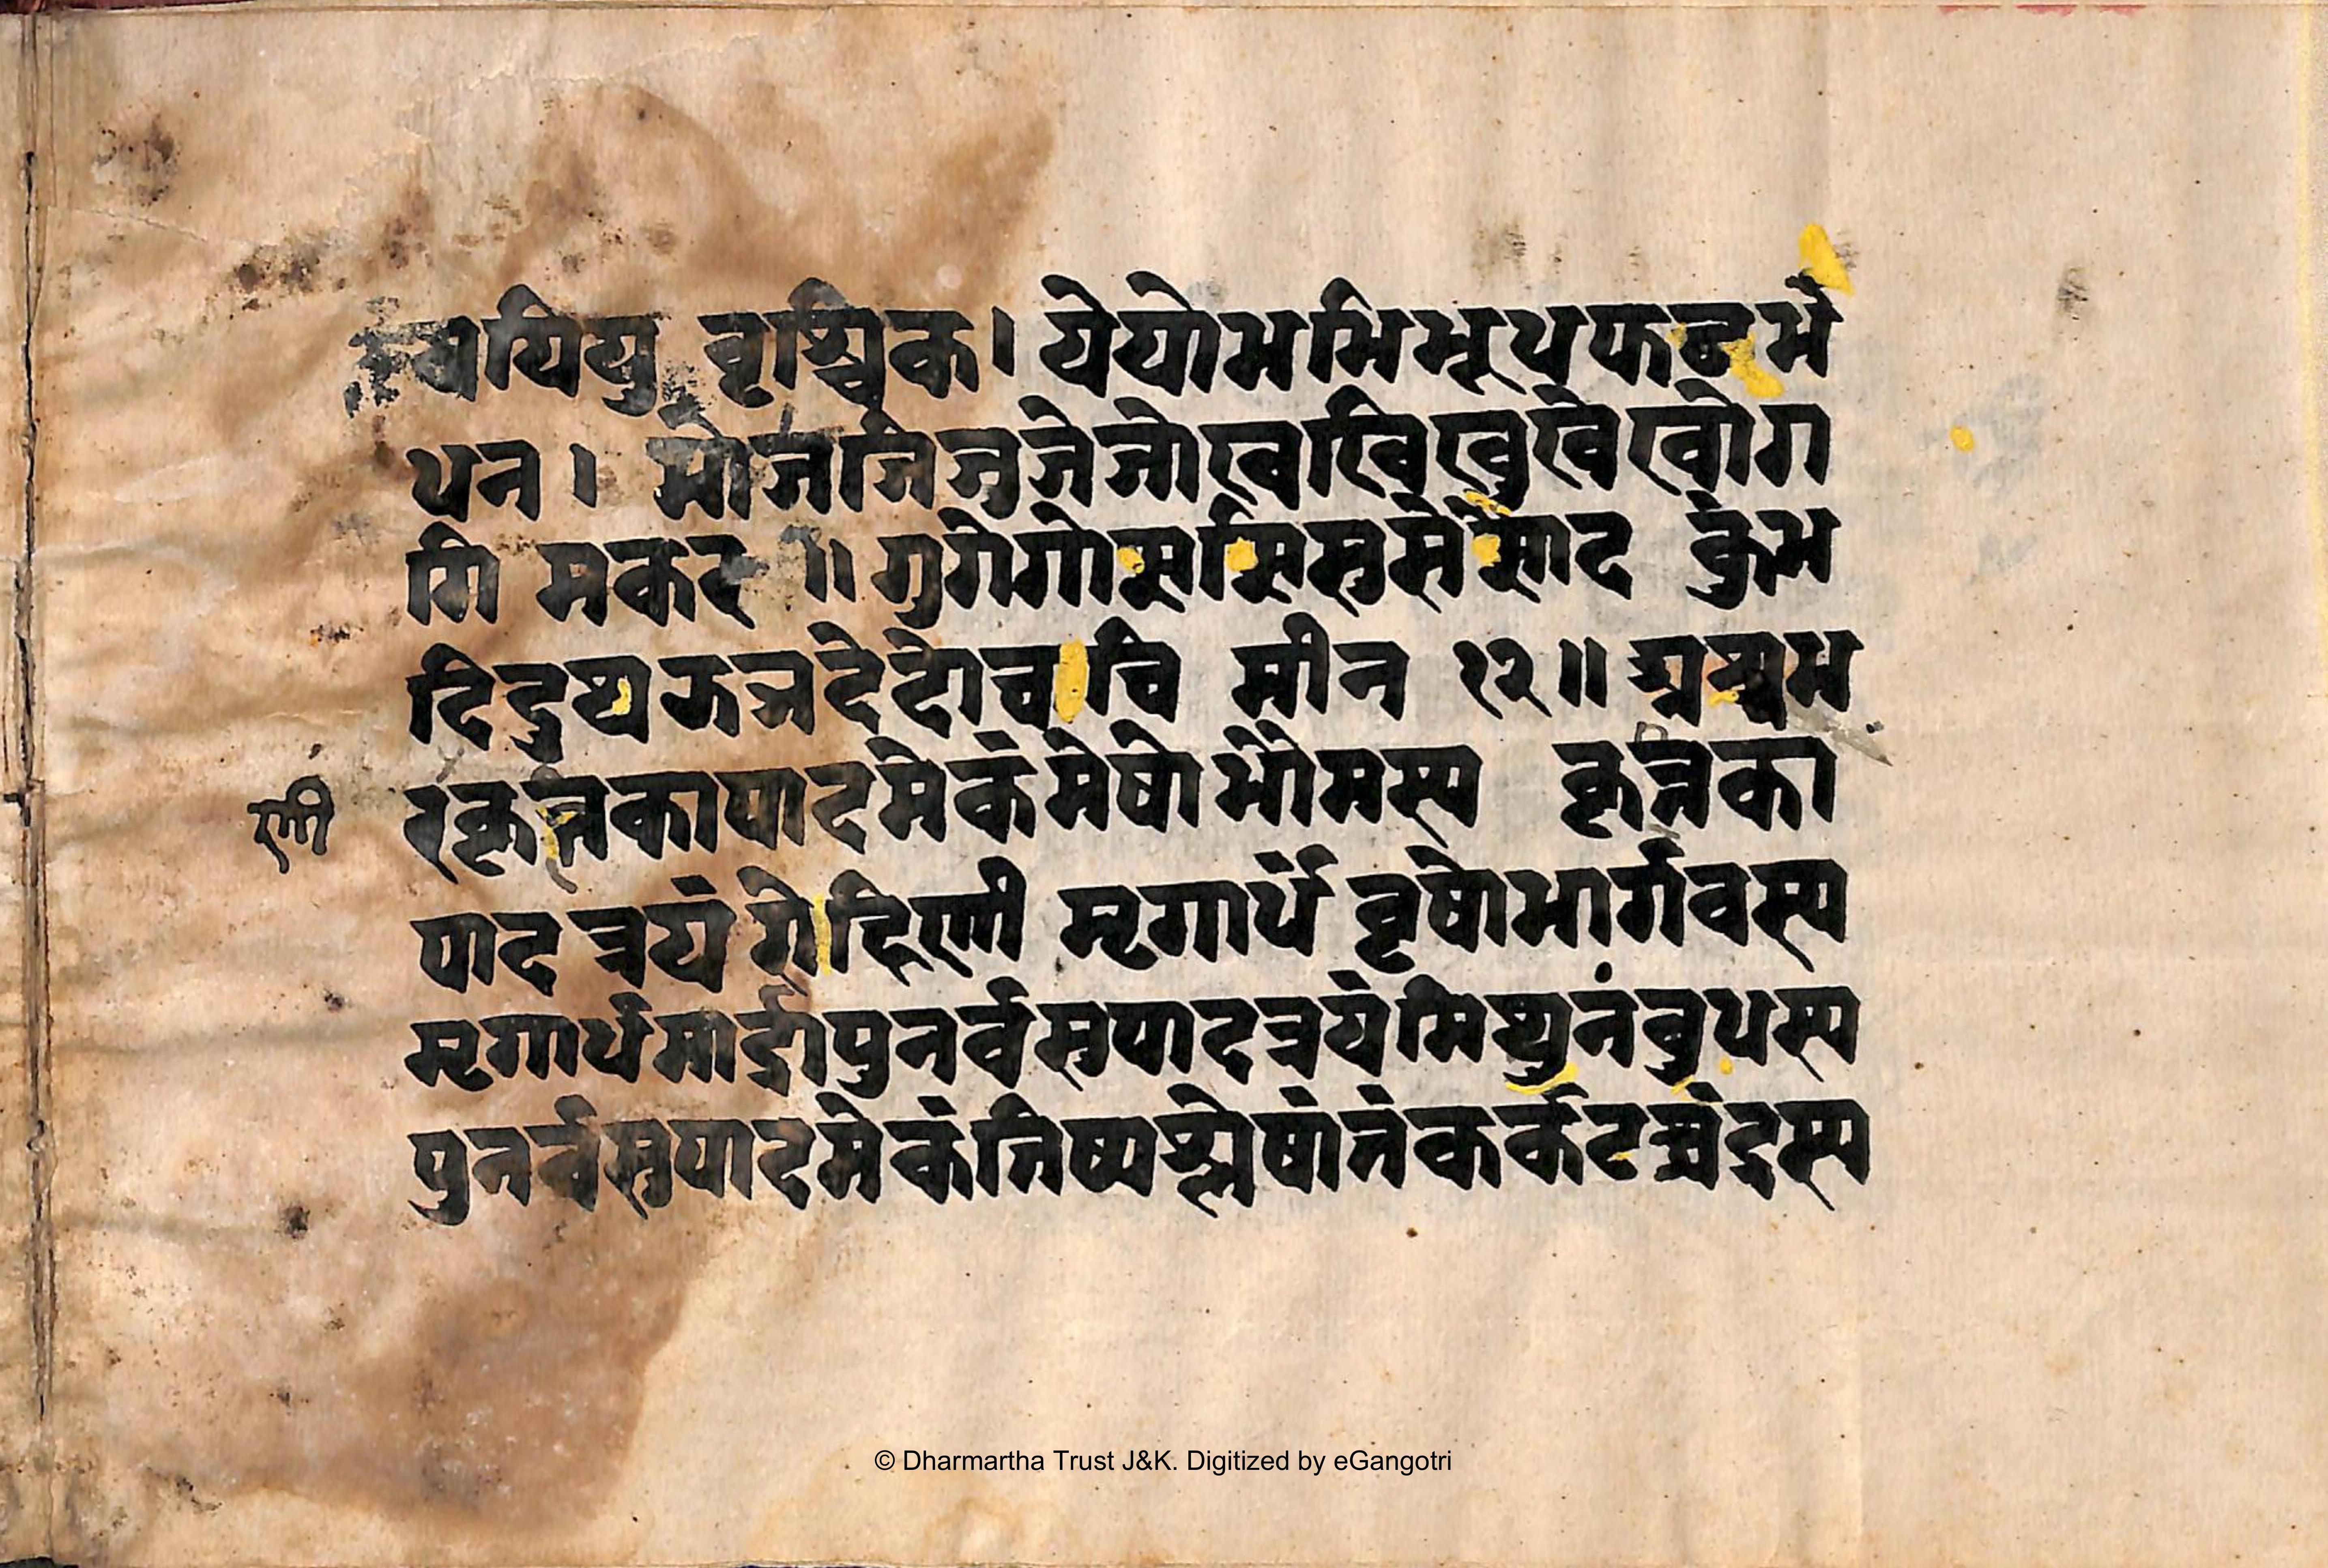 ययियु वृश्चिक। येयोभभिभूधफढभे
धन। भोजजिजुजेजोखखिखुखेखोग
गि मकर ॥ गुगेगोससिसुसेसोद कुंभ
दिदुथझञदेदोचचि मीन १२॥ अश्विभ
रकृत्तकापादमेकंमेषोभौमस्य कृत्तका
णी
पादत्रयं रोहिणी मृगार्धं वृषोभार्गवस्य
मृगार्धमार्द्रापुनर्वसुपादत्रयंमिथुनंबुधस्य
पुनर्वसुपादमेकंतिष्यश्लेषांतंकर्कटश्चंद्रस्य
© Dharmartha Trust J&K. Digitized by eGangotri